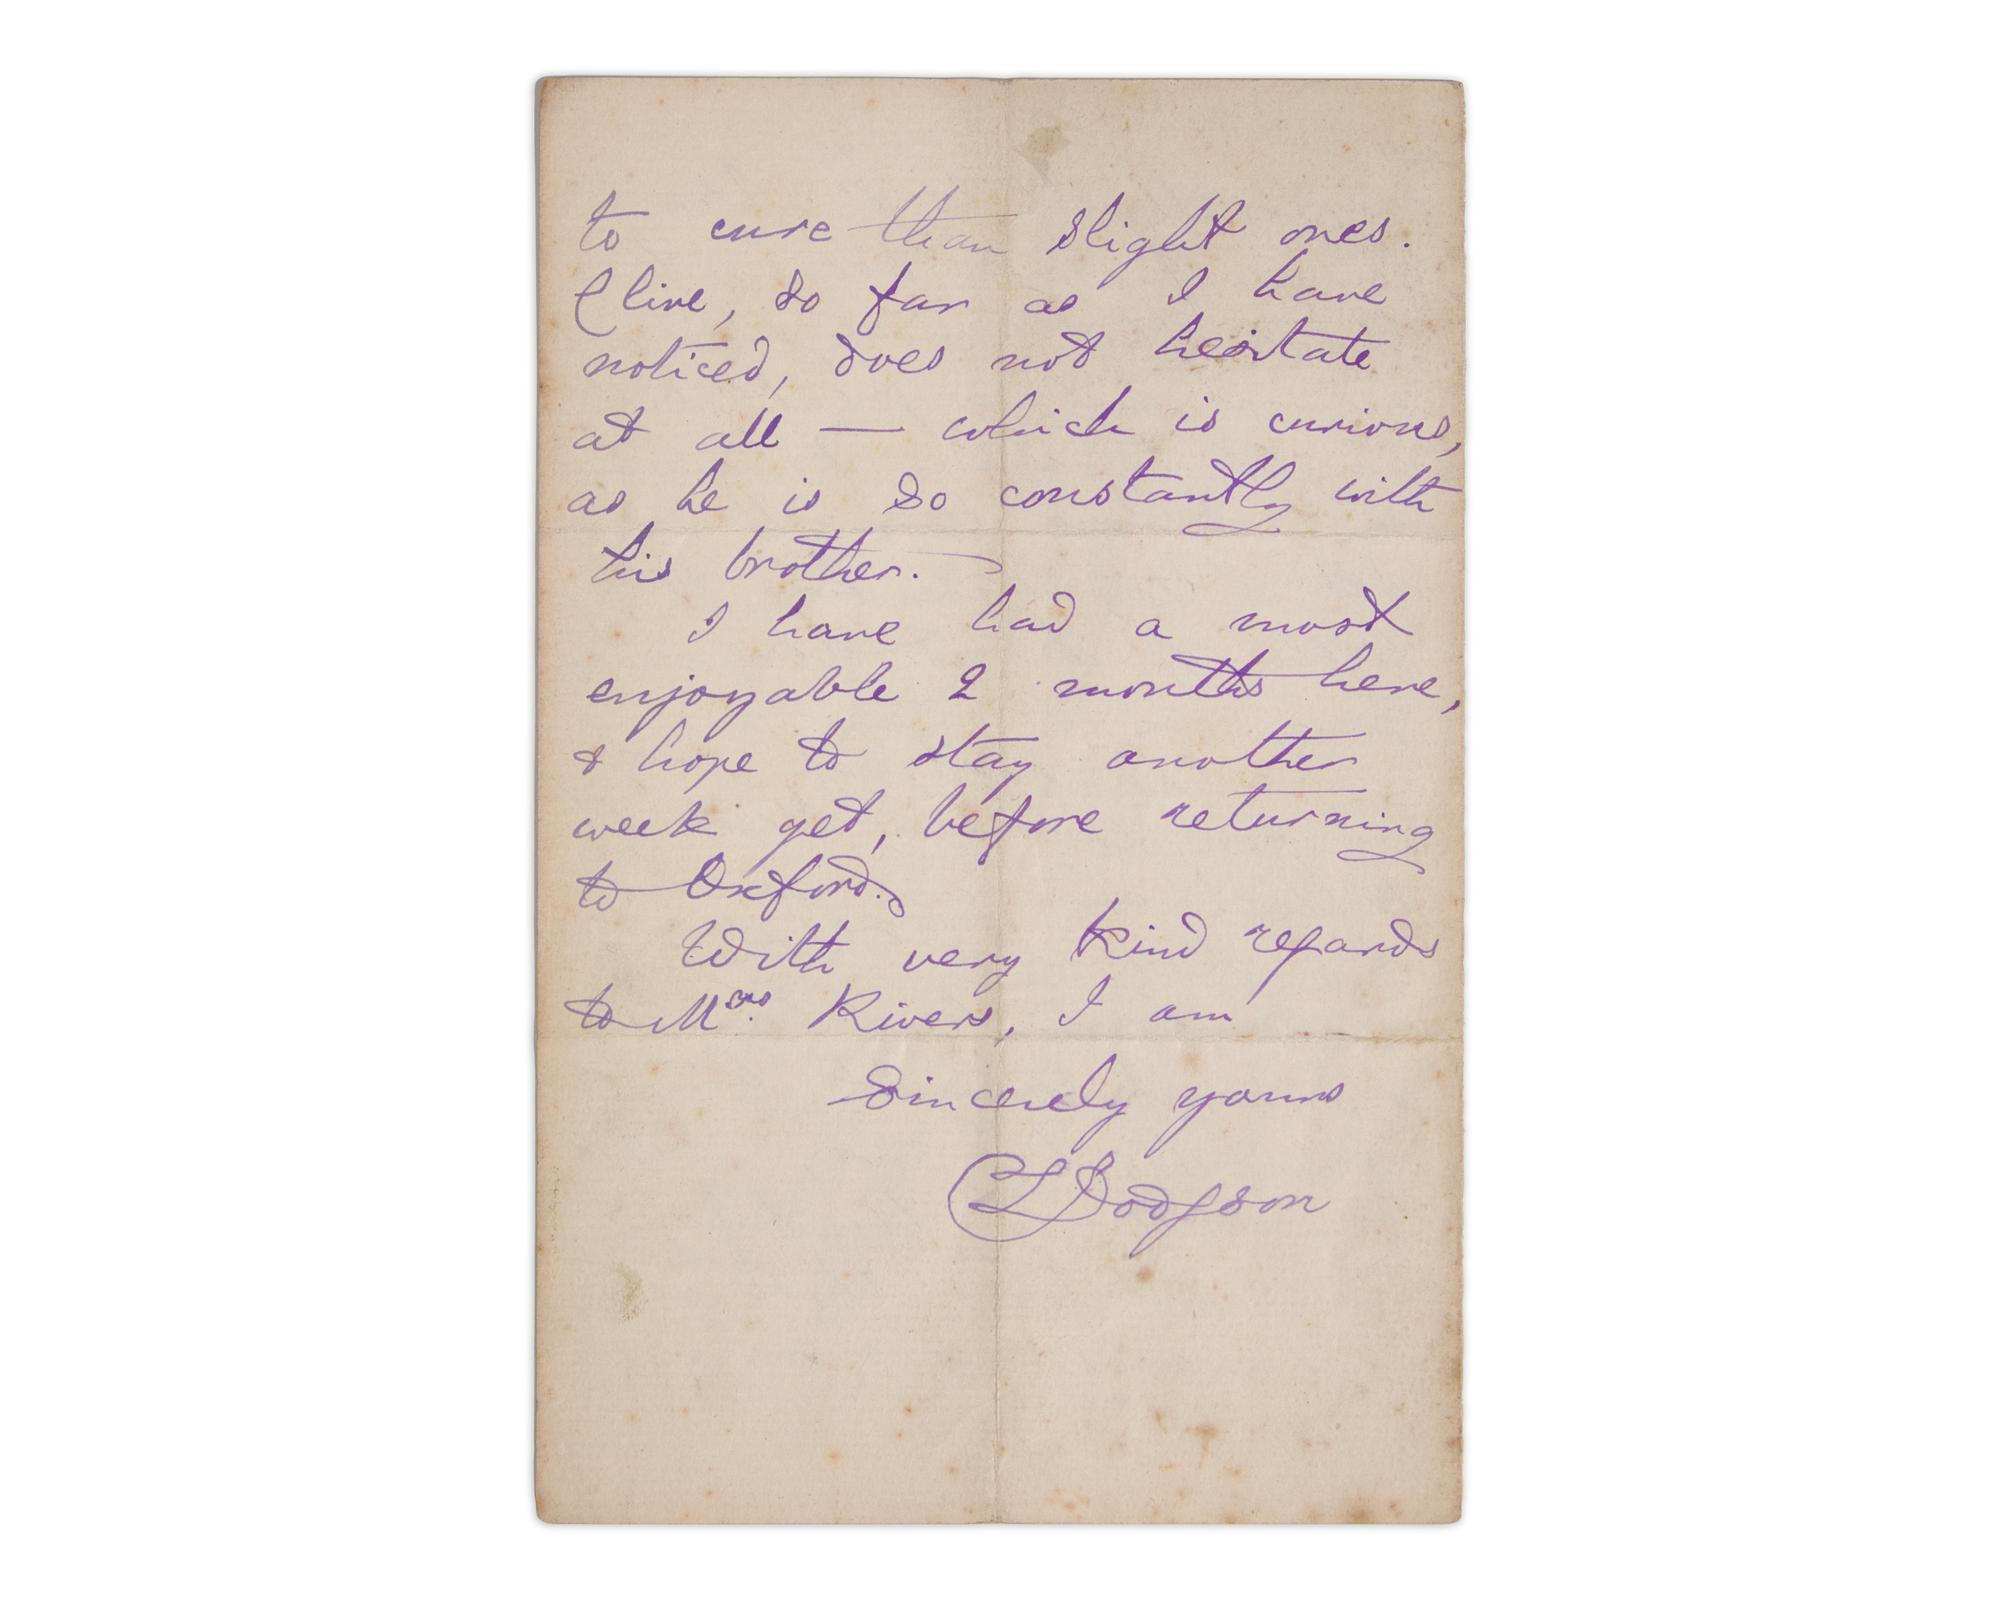 to cure than slight ones.
Clive, so far as I have
noticed, does not hesitate
at all — which is curious,
as he is so constantly with
his brother.
I have had a most
enjoyable 2 months here,
& hope to stay another
week yet, before returning
to Oxford.
With very kind regards
to Mrs. Rivers, I am
Sincerely yours
CLDodgson